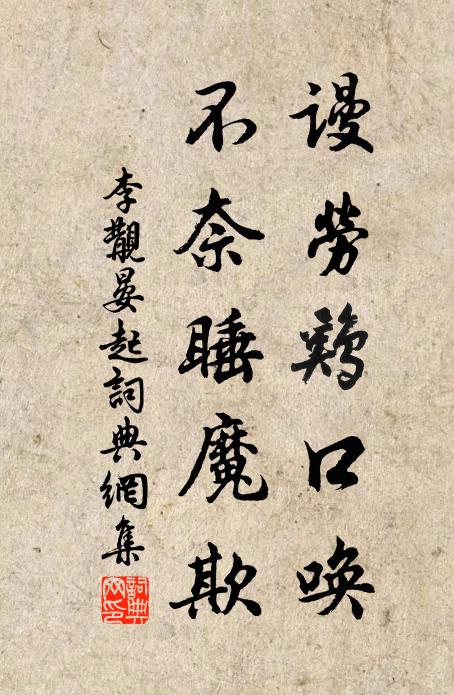 謾勞鷄口喚
不奈睡魔欺
李覯晏起詞典網集
詞典網印